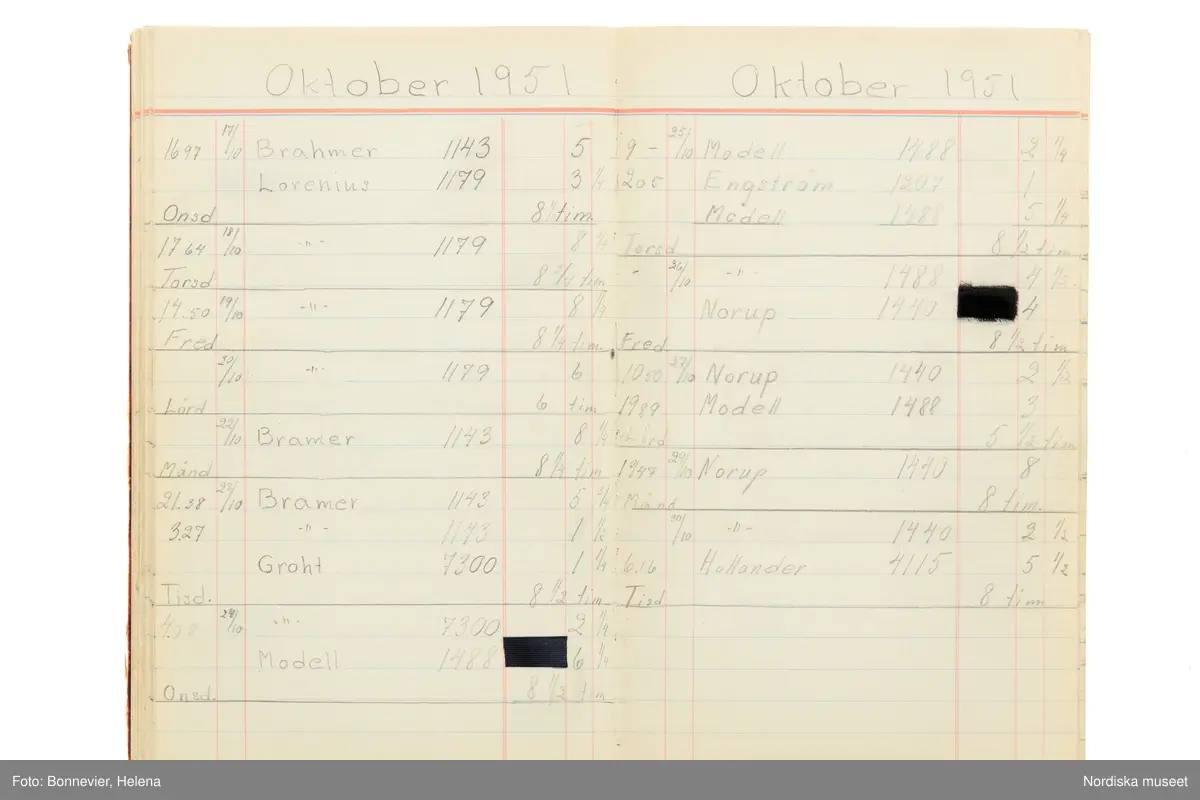 Oktober 1951
1697 17/10 Brahmer 1143 5
Lorenius 1179 3 1/4
Onsd 8 tim.
1764 18/10 -"- 1179 8
Torsd 8 tim
14.50 19/10 -"- 1179 8 1/4
Fred 8 1/4 tim.
20/10 -"- 1179 6
Lörd 6 tim
22/10 Bramer 1143 8 1/4
Månd 8 1/4 tim
21.38 23/10 Bramer 1143 5
3.27 -"- 1143 1 1/2
Groht 7300 1 1/4
Tisd. 8 1/2 tim
24/10 -"- 7300 2 1/4
Modell 1488 6 1/4
Onsd. 8 1/2 tim
Oktober 1951
9 - 25/10 Modell 1488 2 1/4
Engström 1207 1
Modell 1488 5 1/4
Torsd 8 1/2 tim
26/10 -"- 1488 4 1/2
Norup 1440 4
Fred. 8 1/2 tim
1050 27/10 Norup 1440 2 1/2
1989 Modell 1488 3
Lörd 5 1/2 tim
1947 29/10 Norup 1440 8
Månd 8 tim.
30/10 -"- 1440 2 1/2
6.16 Hollander 4115 5 1/2
Tisd 8 tim
Foto: Bonnevier, Helena
Nordiska museet